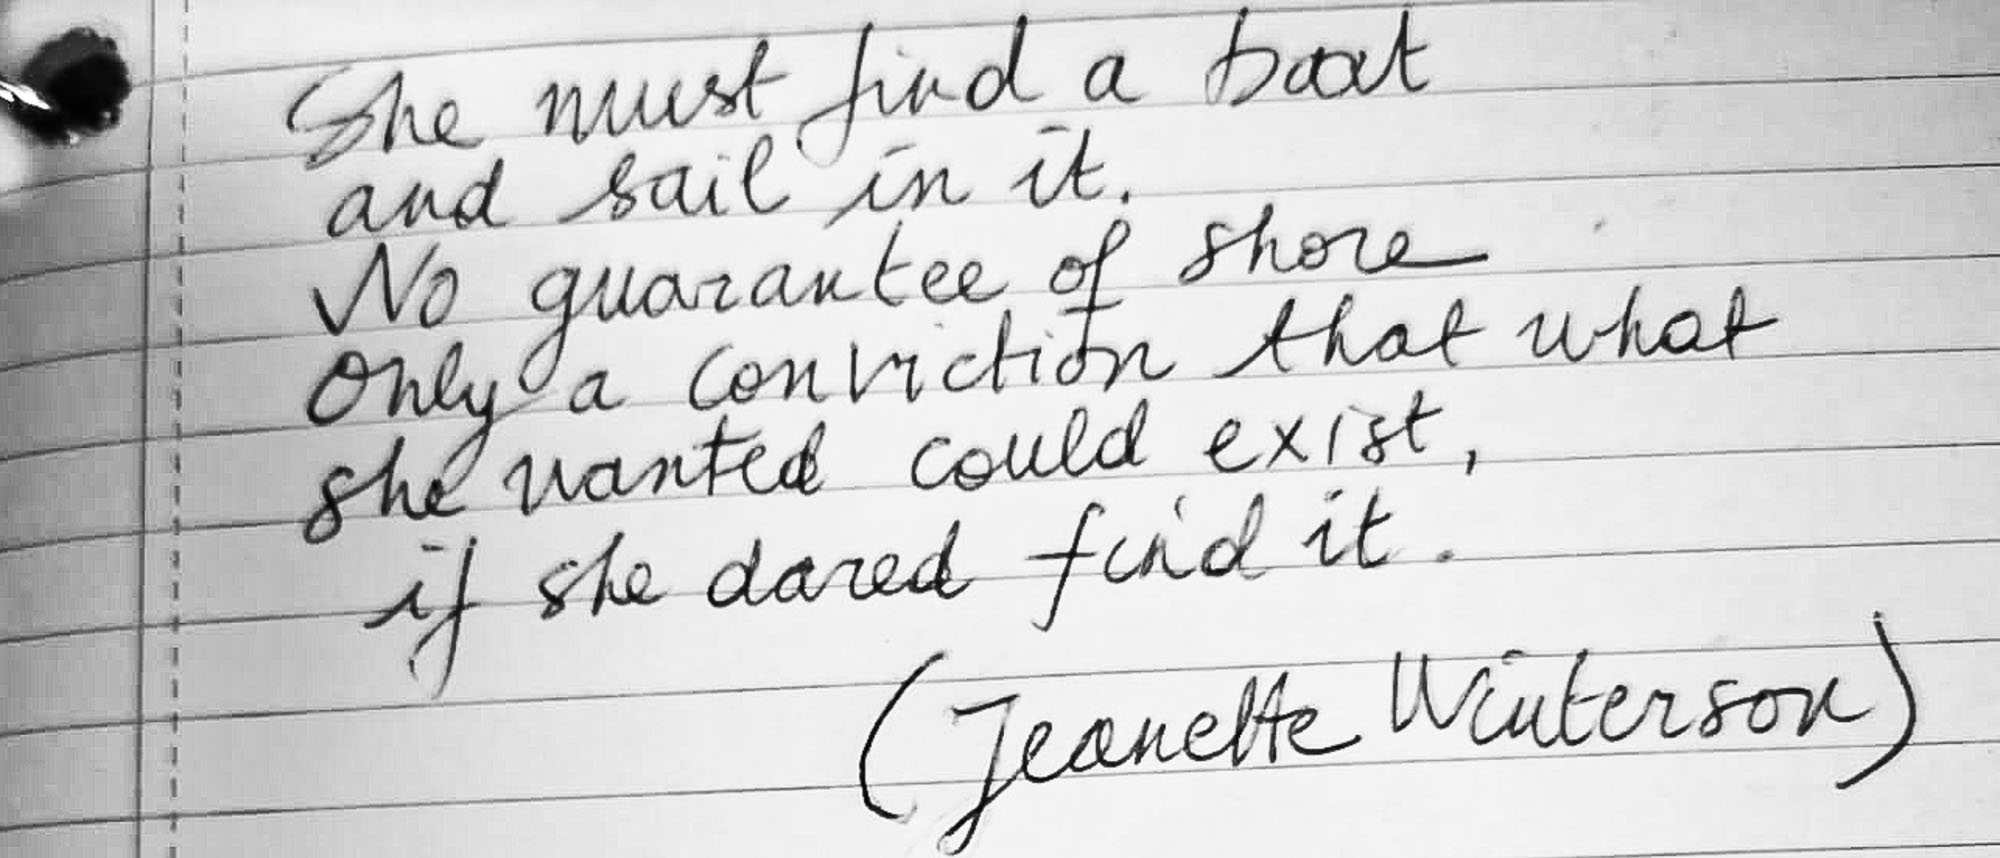 She must find a boat
and sail in it.
No guarantee of shore
Only a conviction that what
she wanted could exist,
if she dared find it.
(Jeanette Winterson)